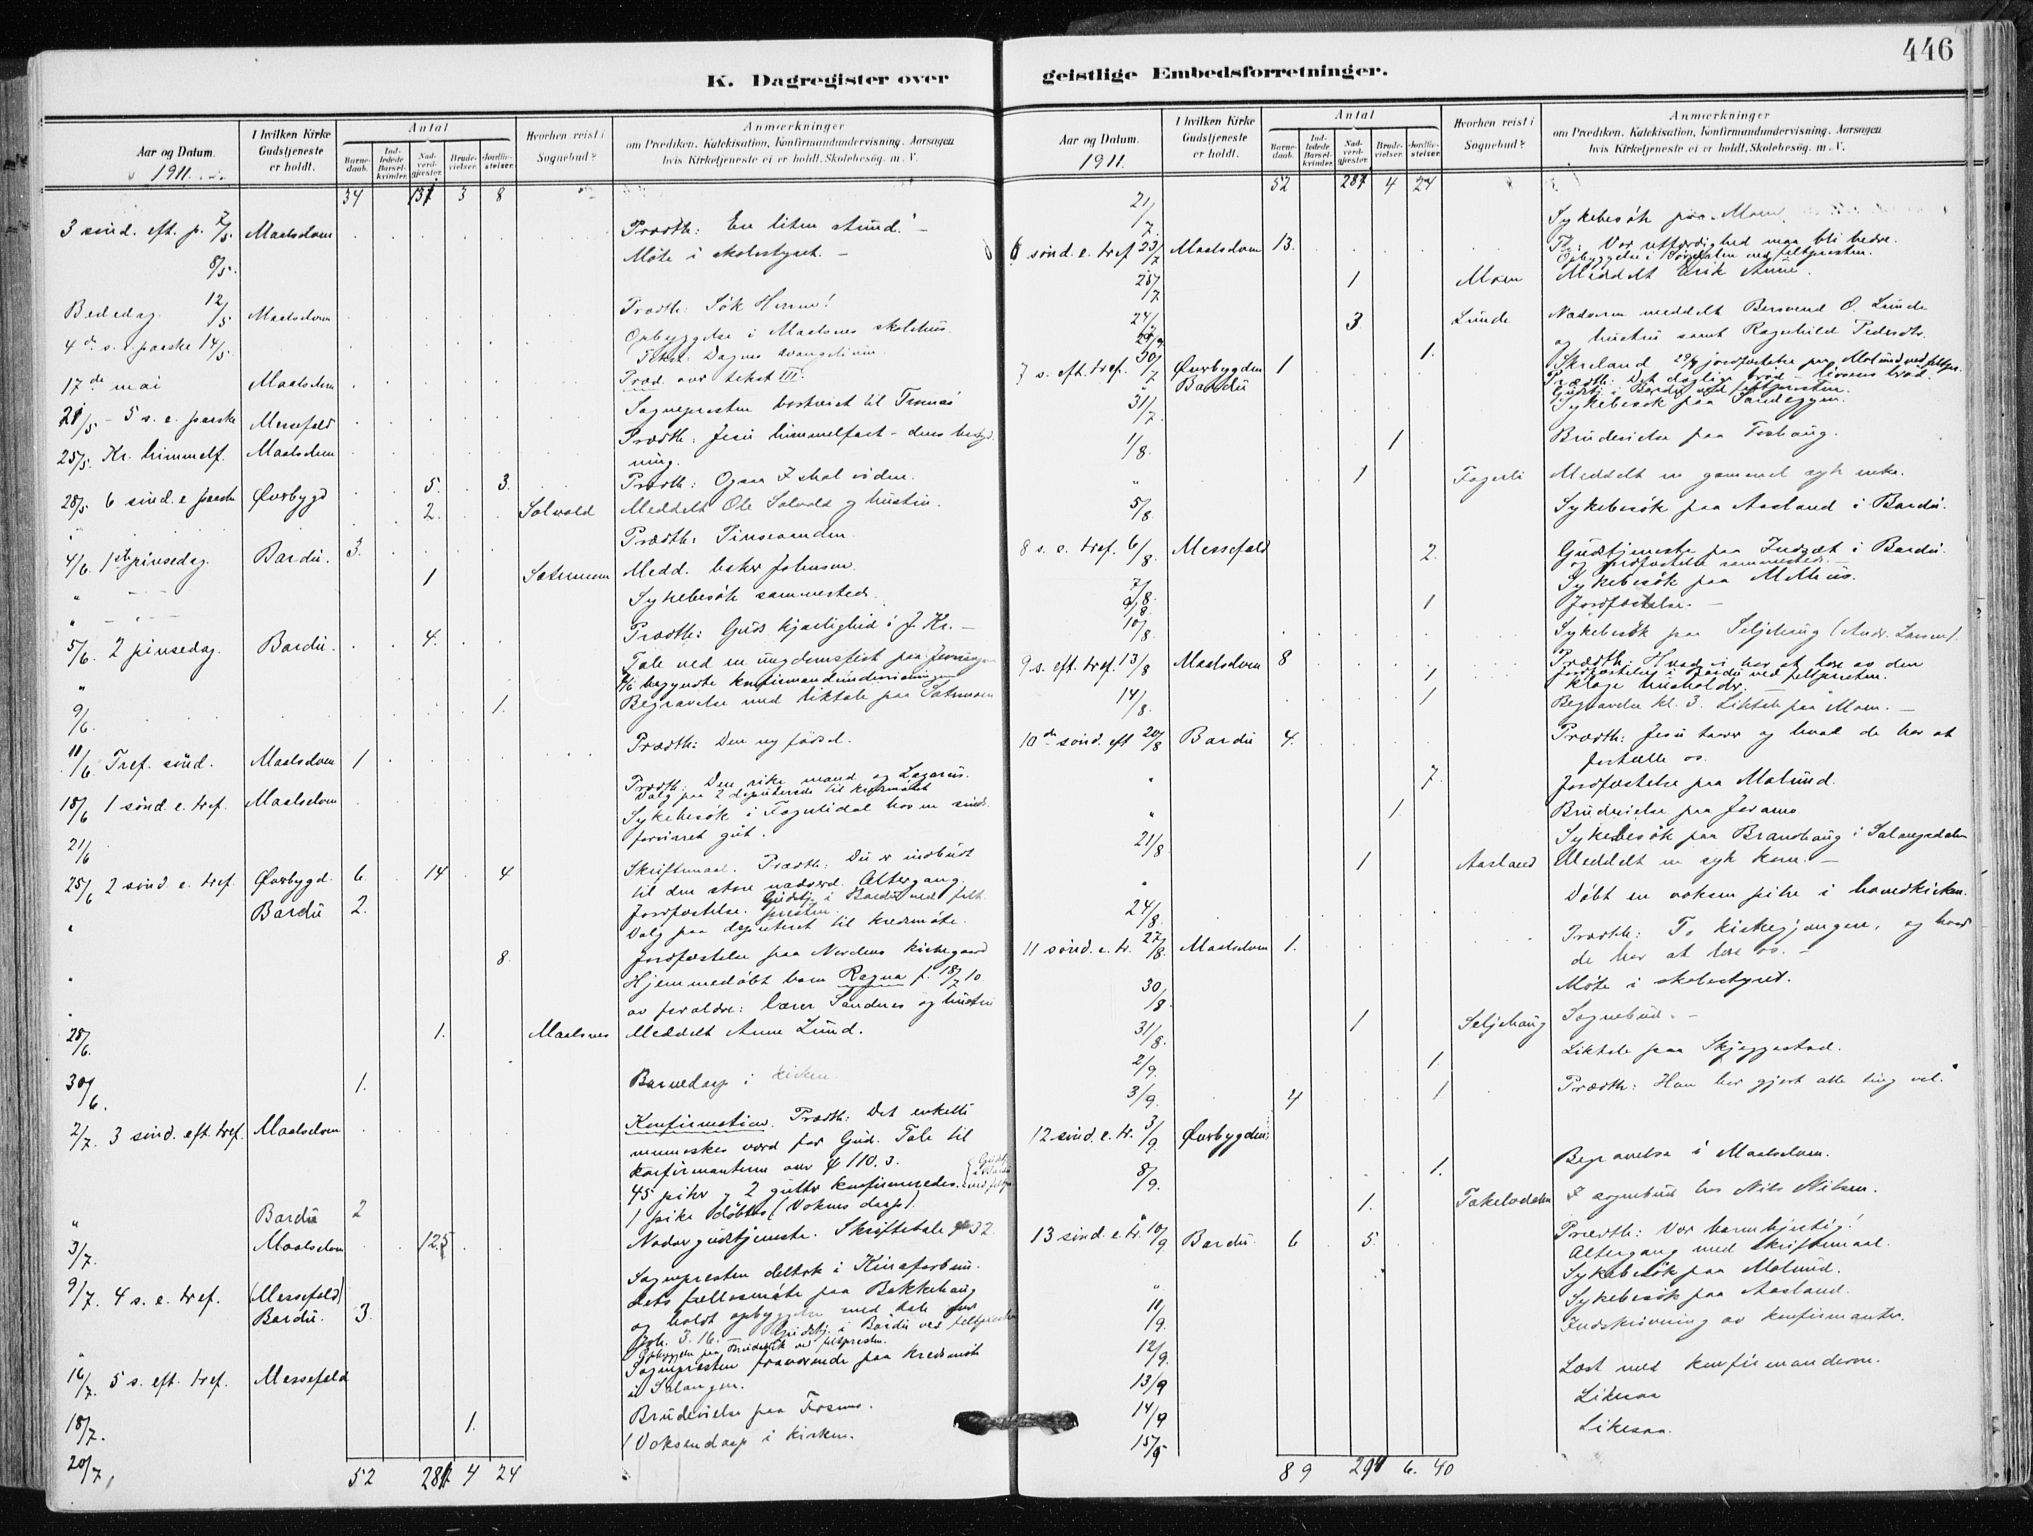 446
K. Dagregister over geistlige Embedsforretninger.
Aar og Datum. 1911.
I hvilken Kirke Gudstjeneste er holdt.
Antal
Barnedaab.
Indledede Barselkvinder.
Nadverdgjæster.
Brudevielser.
Jordfæstelser.
Hvorhen reist i Sognebud?
Anmærkninger
om Prædiken, Katekisation, Konfirmandundervisning, Aarsagen
hvis Kirketjeneste ei er holdt, Skolebesøg, m. V.
34 131 3 8
3 sønd. eft. p. 7/5. Maalselven Prædth: En liten stund!
8/5. Møte i skolestyret.
Bededag 12/5 Maalselven Prædth: Søk Herren!
4de s. e. paaske 14/5 Opbyggelse i Maalsnes skolehus.
Tekst: Dagens evangelium.
17de mai Maalselven Præd. over tekst III.
21/5 - 5 s. e. paaske Messefald Sognepresten bortreist til Tromsø
25/5. Kr. himmelf. Maalselven Prædth: Jesu himmelfart - dens betyd
ning.
28/5 6 sønd. e. paaske Øverbygd 5. 3. Prædth: Ogsaa I skal vidne.
" 2. Solvold Meddelt Ole Solvold og hustru.
4/6. 1ste pinsedag. Bardu. 3. Prædth: Pinseaanden.
" 1 Sætermoen Medd. baker Johnsen.
" Sykebesøk sammesteds.
5/6. 2 pinsedag. Bardu. 4. Prædth: Guds kjærlighed i J. Kr. -
" Tale ved en ungdomsfest paa
6/6 begyndte konfirmandundervisningen
9/6 1. Begravelse med liktale paa Sætermoen
11/6. Tref. sønd. Maalselven 1 Prædth: Den ny fødsel.
18/6 1 sønd. e. tref. Maalselven Prædth: Den rike mand og Lazarus.
Valg paa 2 deputerede til kredsmøtet
21/6 Sykebesøk i Fagerlidal hos en sinds
forvirret gut.
25/6 2 sønd. e. tref. Øverbygd. 6. 14 4 Skriftemaal. Prædth: Du er indbudt
til den store nadverd. Altergang.
" Bardu 2. Jordfæstelse. Gudstj. i Bardu ved felt
presten.
Valg paa deputeret til kredsmøte.
" 8. Jordfæstelse paa Nordmo kirkegaard
" Hjemmedøbt barn Ragna f. 18/7 10
av forældre: Lærer Sandnes og hustru
28/6. 1. Maalsnes Meddelt Anne Lund.
30/6. 1. Barnedaap i kirken.
2/7. 3 sønd. eft. tref. Maalselven Konfirmation. Prædth: Det enkelte
menneskes værd for Gud. Tale til
konfirmanterne over ψ 110.3.
45 piker og 2 gutter konfirmeredes.
" Bardu 2 1 pike døbtes (Voksen daap).
3/7. Maalselven 125 Nadvergudstjeneste. Skriftetale 32.
9/7. 4 s. e. tref. (Messefald) Sognepresten deltok i Kinaforbun.
Bardu. 3. dets fællesmøte paa Bakkehaug
og holdt opbyggelse med tale over
Joh. 3. 16. Gudstj. i Bardu ved feltpresten
16/7. 5 s. eft. tref. Messefald Sognepresten fraværende paa kredsmøte
i Salangen.
18/7. 1. Brudevielse paa Fosmo.
20/7. 1 Voksendaap i kirken.
52 281 4 24
Aar og Datum. 1911.
I hvilken Kirke Gudstjeneste er holdt.
Antal
Barnedaab.
Indledede Barselkvinder.
Nadverdgjæster.
Brudevielser.
Jordfæstelser.
Hvorhen reist i Sognebud?
Anmærkninger
om Prædiken, Katekisation, Konfirmandundervisning, Aarsagen
hvis Kirketjeneste ei er holdt, Skolebesøg, m. V.
52 281 4 24
21/7. Sykebesøk paa Moen
6 sønd. e. tref 23/7 Maalselven 13. Th: Vor retfærdighed maa bli bedre.
Opbyggelse i ved feltpresten.
25/7. 1 Moen Meddelt Erik
24/7 3. Lunde Nadveren meddelt Bersvend O. Lunde
og hustru samt Ragnhild Pedersdtr.
1. Skreland 29/7 jordfæstelse paa Molund ved feltpr.
7 s. eft. tref. 30/7 Øverbygden 1 Prædth: Det daglige brød - livsens brød.
Bardu Gudstj. i Bardu ved feltpresten.
31/7. Sykebesøk paa Sandeggen.
1/8. 1 Brudevielse paa Foshaug.
" 1 Fagerli Meddelt en gammel syk enke.
5/8. Sykebesøk paa Aasland i Bardu.
8 s. e. tref. 6/8. Messefald 2. Gudstjeneste paa Indset i Bardu.
og jordfæstelse sammesteds.
7/8. Sykebesøk paa
9/8. 1 Jordfæstelse. -
10/8. Sykebesøk paa Seljehaug (Andr. Larsen).
9 s. eft. tref. 13/8 Maalselven 8 1 Prædth. Hvad vi har at lære av den
jordfæstelse i Bardu ved feltpresten.
kloge husholder.
14/8. 1 Begravelse kl. 3. Liktale paa Moen. -
10de sønd. eft 20/8 Bardu 4. Prædth: Jesu taarer og hvad de har at
fortælle os.
" 7. Jordfæstelse paa Molund.
" 1. Brudevielse paa
21/8. Sykebesøk paa Brandhaug i Salangsdalen
" 1 Aasland Meddelt en syk kone. -
24/8. Døbt en voksen pike i hovedkirken.
11 sønd. e. tr. 27/8. Maalselven 1. Prædth: To kirkegjængere, og hvad
de har at lære os. -
30/8. Møte i skolestyret.
31/8. 1 Seljehaug Sognebud. -
2/9. 1. Liktale paa Skjeggestad.
3/9. 4 1 Prædth: Han har gjort alle ting vel.
12 sønd. e. tr. 3/9. Øverbygden;
8/9. 1. Begravelse i Maalselven.
1. Takelvdalen I sognebud hos Nils Nilsen.
13 sønd. e. tr. 10/9 Bardu. 6 5. Prædth: Vær barmhjertig!
Altergang med skriftemaal.
" Sykebesøk paa Molund.
11/9. Sykebesøk paa Aasland.
Indskrivning av konfirmanter.
12/9. Læst med konfirmanderne.
13/9 Likesaa
14/9 Likesaa.
15/9
89 291 6. 40